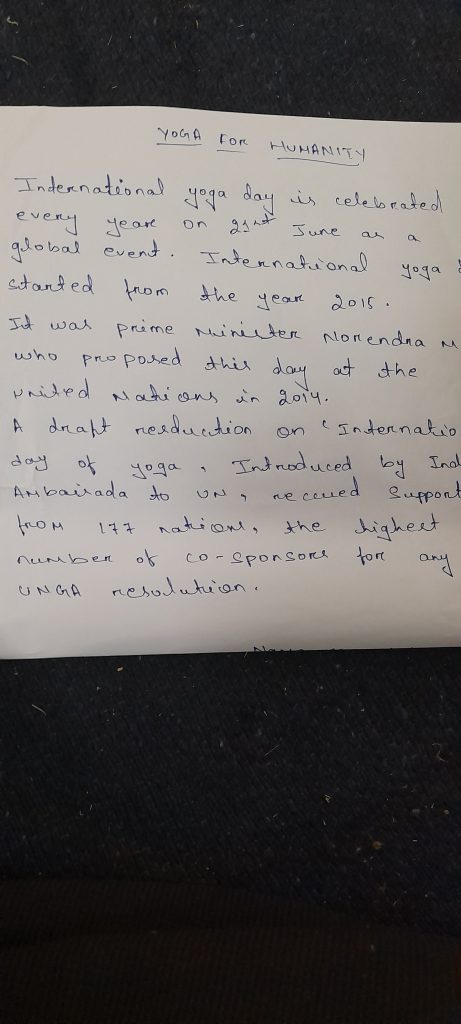 YOGA FOR HUMANITY
International yoga day is celebrated
every year on 21st June as a
global event. International yoga
started from the year 2015.
It was prime Minister Norendra M
who proposed this day at the
united Nations in 2014.
A draft resduction on "Internatio
day of yoga, Introduced by Ind
Ambairada to UN, received Support
from 177 nations, the highest
number of co-sponsors for any
UNGA resolution.